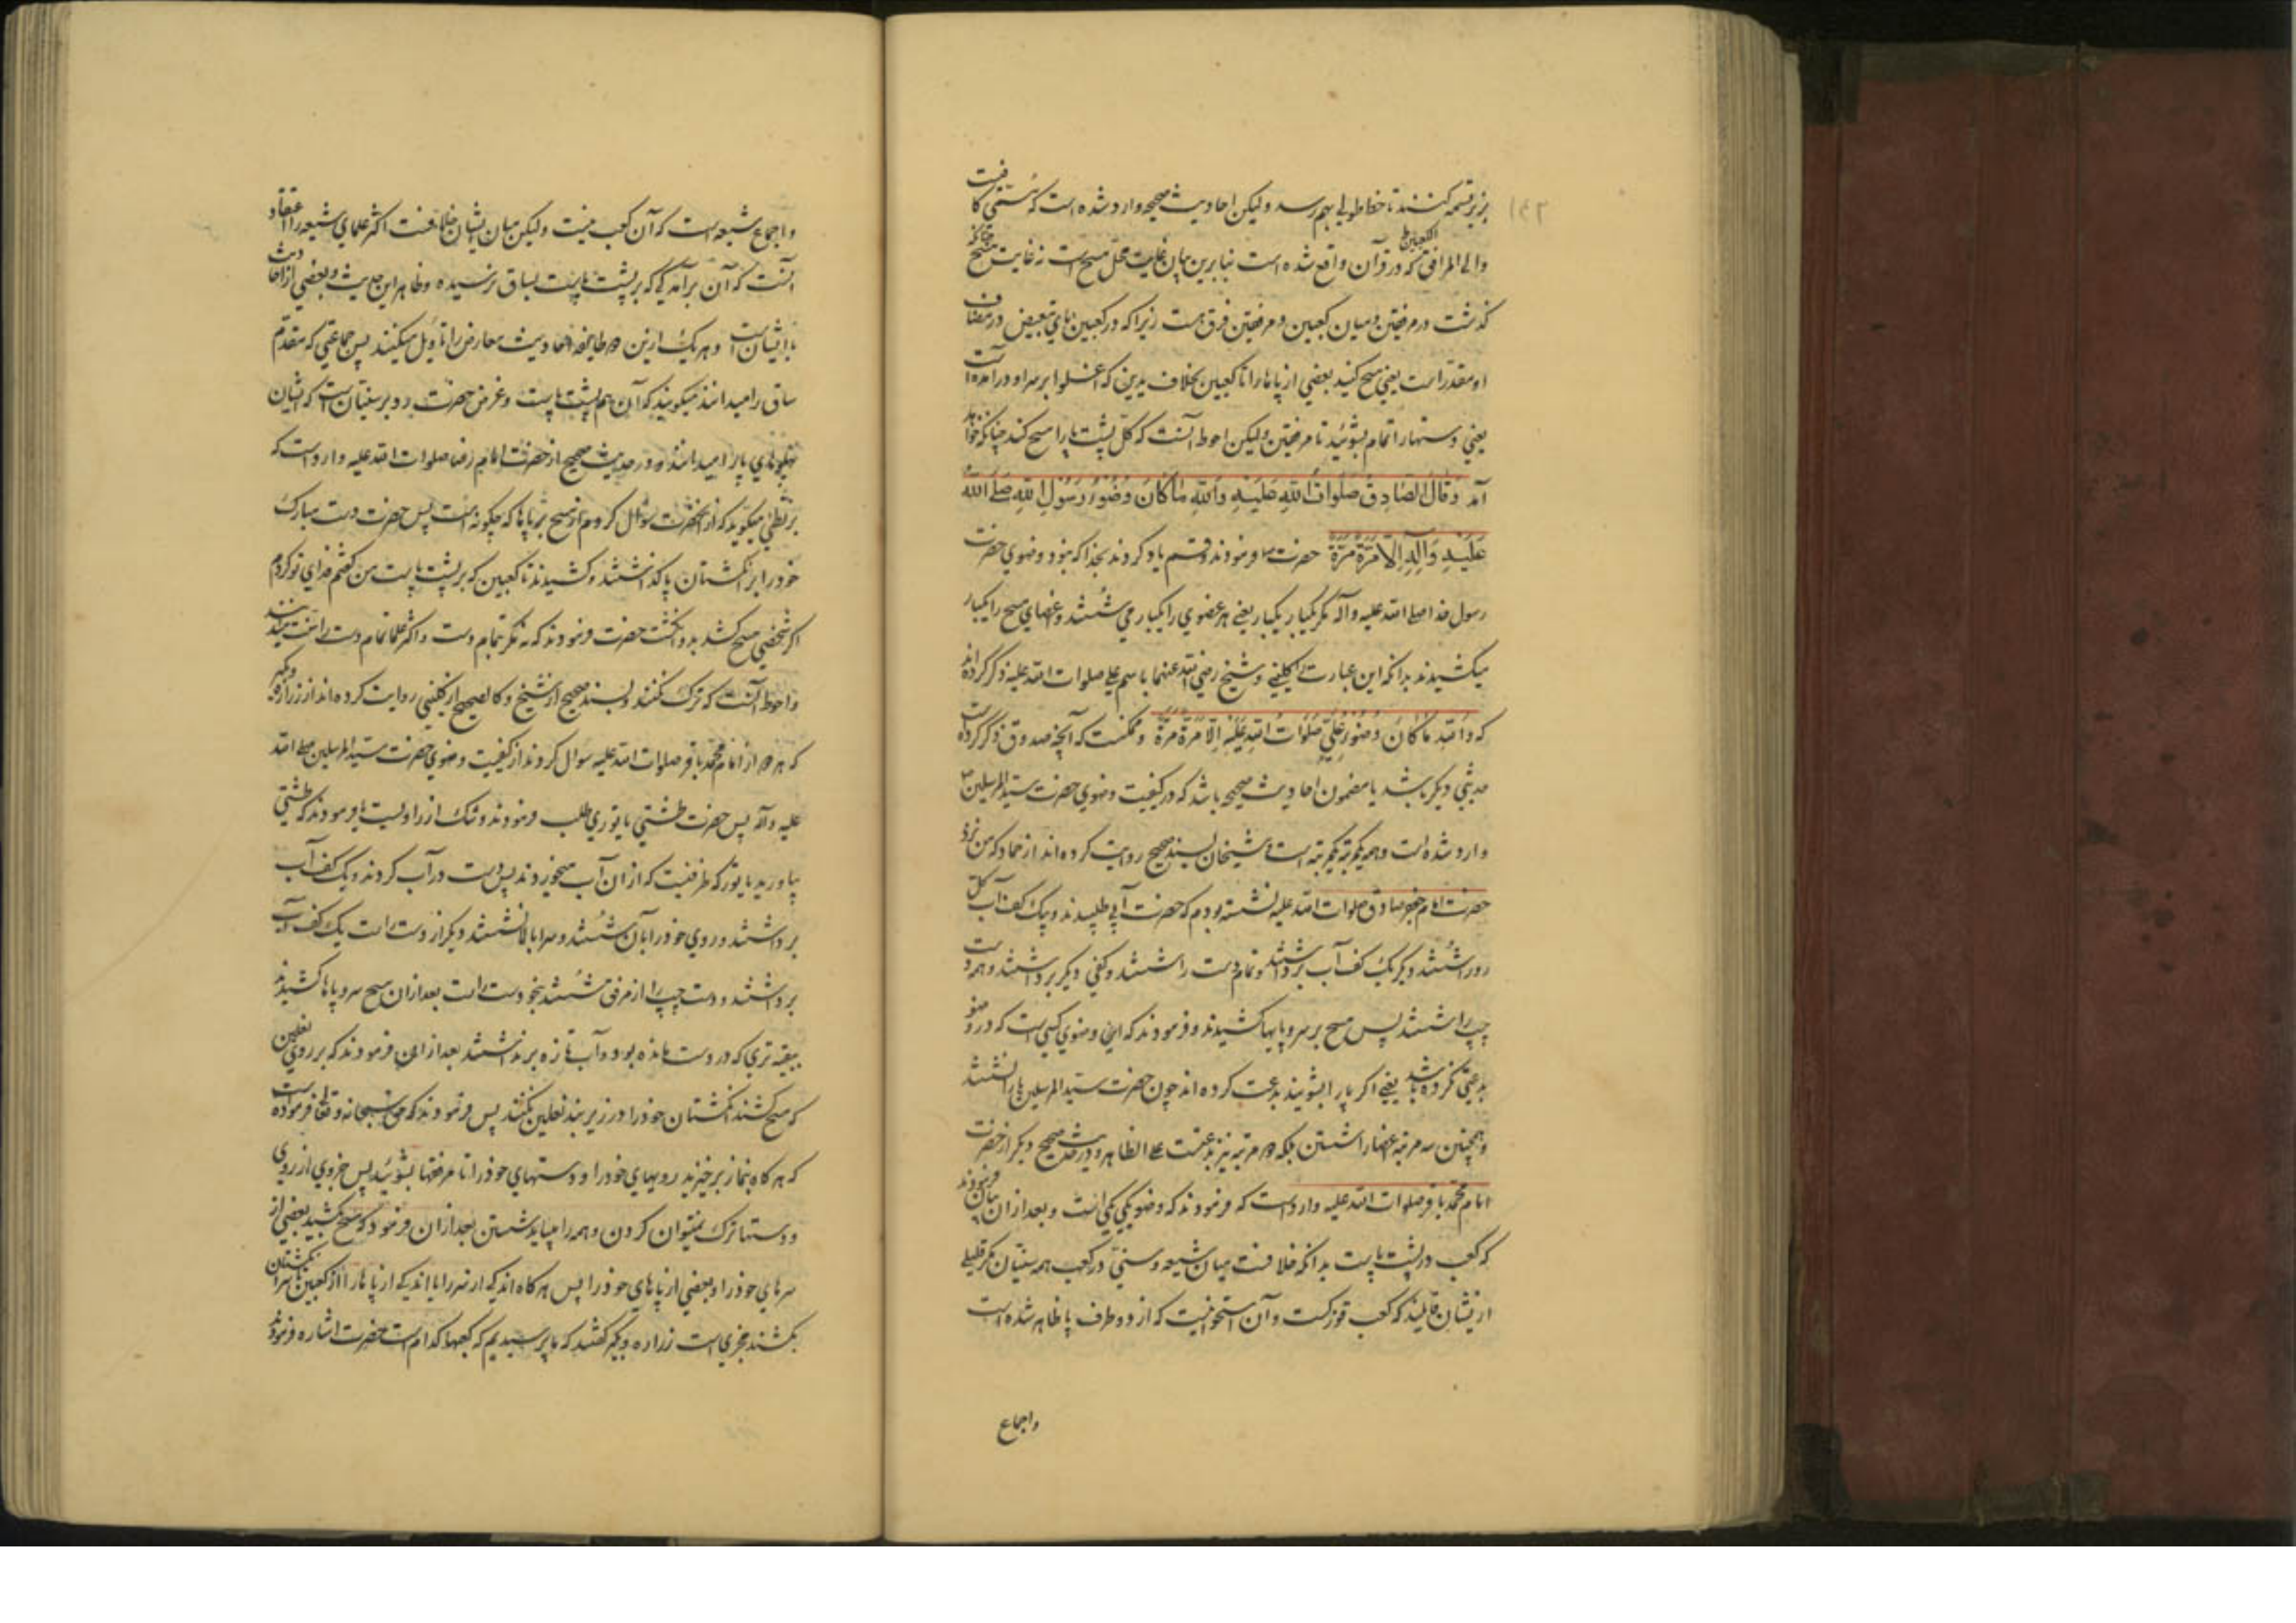 بزیر تسمه کنند تا خط طولی بهم رسد ولیکن احادیث صحیحه وارد شده است که مسمّی کافیست
والی المرافق که در قرآن واقع شده است بنابرین بیان غایت محل مسح است نه غایت مسح چنانکه
الکعبین
گذشت در مرفقین و میان کعبین و مرفقین فرق هست زیرا که در کعبین بای تبعیض در مضاف
او مقدّر است یعنی مسح کنید بعضی از پاها را تا کعبین بخلاف یدین که اغسلوا بر سر او در آمده است
یعنی دستها را تمام بشوئید تا مرفقین ولیکن احوط آنست که کل پشت پا را مسح کند چنانکه خواهد
آمد وَقالَ الصّادِقُ صَلَواتُ اللّهِ عَلَیْهِ وَاللّهِ ماکانَ وُضُوُءُ رَسُوْلِ اللّهِ صَلَّی اللّهُ
عَلَیْهِ وَآلِهِ اِلّا مَرَّةً مَرَّةً حضرت فرمودند و قسم یاد کردند بخدا که نبود وضوی حضرت
رسول خدا صلی الله علیه وآله مکر یکبار یکبار یعنی هر عضوی را یکبار می شستند و عضهای مسح را یکبار
میکشیدند بدانکه این عبارت را کلینی و شیخ رضی الله عنهما باسم علی صلوات الله علیه ذکر کرده اند
که وَاللّهِ ماکانَ وُضُوءُ عَلِیٍّ صَلَواتُ اللّهِ عَلَیْهِ اِلّا مَرَّةً مَرَّةً و ممکنست که آنچه صدوق ذکر کرده است
حدیثی دیکر باشد یا مضمون احادیث صحیحه باشد که در کیفیت وضوی حضرت سید المرسلین ص
وارد شده است و همه یکمرتبه یکمرتبه است و شیخان بسند صحیح روایت کرده اند از حماد که من نزد
حضرت امام جعفر صادق صلوات الله علیه نشسته بودم که حضرت آبی طلبیدند و بیک کف آب کل
رو را شستند و دیکر یک کف آب برداشتند و تمام دست را شستند و کفی دیکر برداشتند و همه دست
چپ را شستند پس مسح بر سر و پایها کشیدند و فرمودند که این وضوی کسی است که در وضو
بدعتی نکرده باشد یعنی اکر پا را بشویند بدعت کرده اند چون حضرت سید المرسلین پا را نشستند
و همچنین سه مرتبه اعضا را شستن بلکه دو مرتبه نیز بدعتست علی الظاهر و در حدیث صحیح دیکر از حضرت
امام محمد باقر صلوات الله علیه وارد است که فرمودند که وضو یکی یکی است و بعد از آن بیان فرمودند
که کعب در پشت پاست بدانکه خلافست میان شیعه و سنی در کعب همه سنیان مکر قلیلی
از یشان قایلند که کعب قوزکست و آن استخوانیست که از دو طرف پا ظاهر شده است
واجماع
واجماع شیعه است که آن کعب نیست ولیکن میان ایشان خلافست اکثر علمای شیعه را اعتقاد
آنست که آن برآمدکی که بر پشت پاست بساق نرسیده و ظاهر این حدیث و بعضی از احادیث
با ایشان است و هر یک ازین دو طایفه احادیث معارض را تاویل میکنند پس جماعتی که مقدم
ساق را میدانند میکویند که آن هم پشت پاست و غرض حضرت رد بر سنیان است که ایشان
پهلوهای پا را میدانند و در حدیث صحیح از حضرت امام رضا صلوات الله علیه وارد است که
بزنطی میکوید که از آنحضرت سؤال کردم از مسح بر پاها که چکونه است پس حضرت دست مبارک
خود را بر انکشتان پا کذاشتند و کشیدند تا کعبین که بر پشت پاست من کفتم فدای تو کردم
اکر شخصی مسح کشد بدو انکشت حضرت فرمودند که نه مکر بتمام دست و اکثر علما تمام دست را سنت میدانند
و احوط آنست که ترک نکنند و بسند صحیح از شیخ و کالصحیح از کلینی روایت کرده اند از زراره و بکیر
که هر دو از امام محمد باقر صلوات الله علیه سوال کردند از کیفیت وضوی حضرت سید المرسلین صلی الله
علیه وآله پس حضرت طشتی یا توری طلب فرمودند و شک از راویست یا فرمودند که طشتی
بیاورید یا تور که ظرفیست که از ان آب میخورند پس دست در آب کردند و یک کف آب
برداشتند و روی خود را بآن شستند و سرابالا نشستند دیکر از دست راست یک کف آب
برداشتند و دست چپ را از مرفق شستند بنحو دست راست بعد از ان مسح سر و پاها کشیدند
ببقیه تری که در دست مانده بود و آب تازه برنداشتند بعد از این فرمودند که بر روی نعلین
که مسح کشند انکشتان خود را در زیر بند نعلین نکنند پس فرمودند که حق سبحانه و تعالی فرموده است
که هر کاه بنماز برخیزید رویهای خود را و دستهای خود را تا مرفقها بشوئید پس جزوی از روی
و دستها ترک نمیتوان کردن و همه را میباید شستن بعد از ان فرمود که مسح بکشید بعضی از
سرهای خود را و بعضی از پاهای خود را پس هر کاه اندکی از سر را یا اندکی از پاها را از کعبین تا سر انکشتان
بکشند مجزی است زراره و بکیر کفتند که ما پرسیدیم که کعبها کدام است حضرت اشاره فرمودند